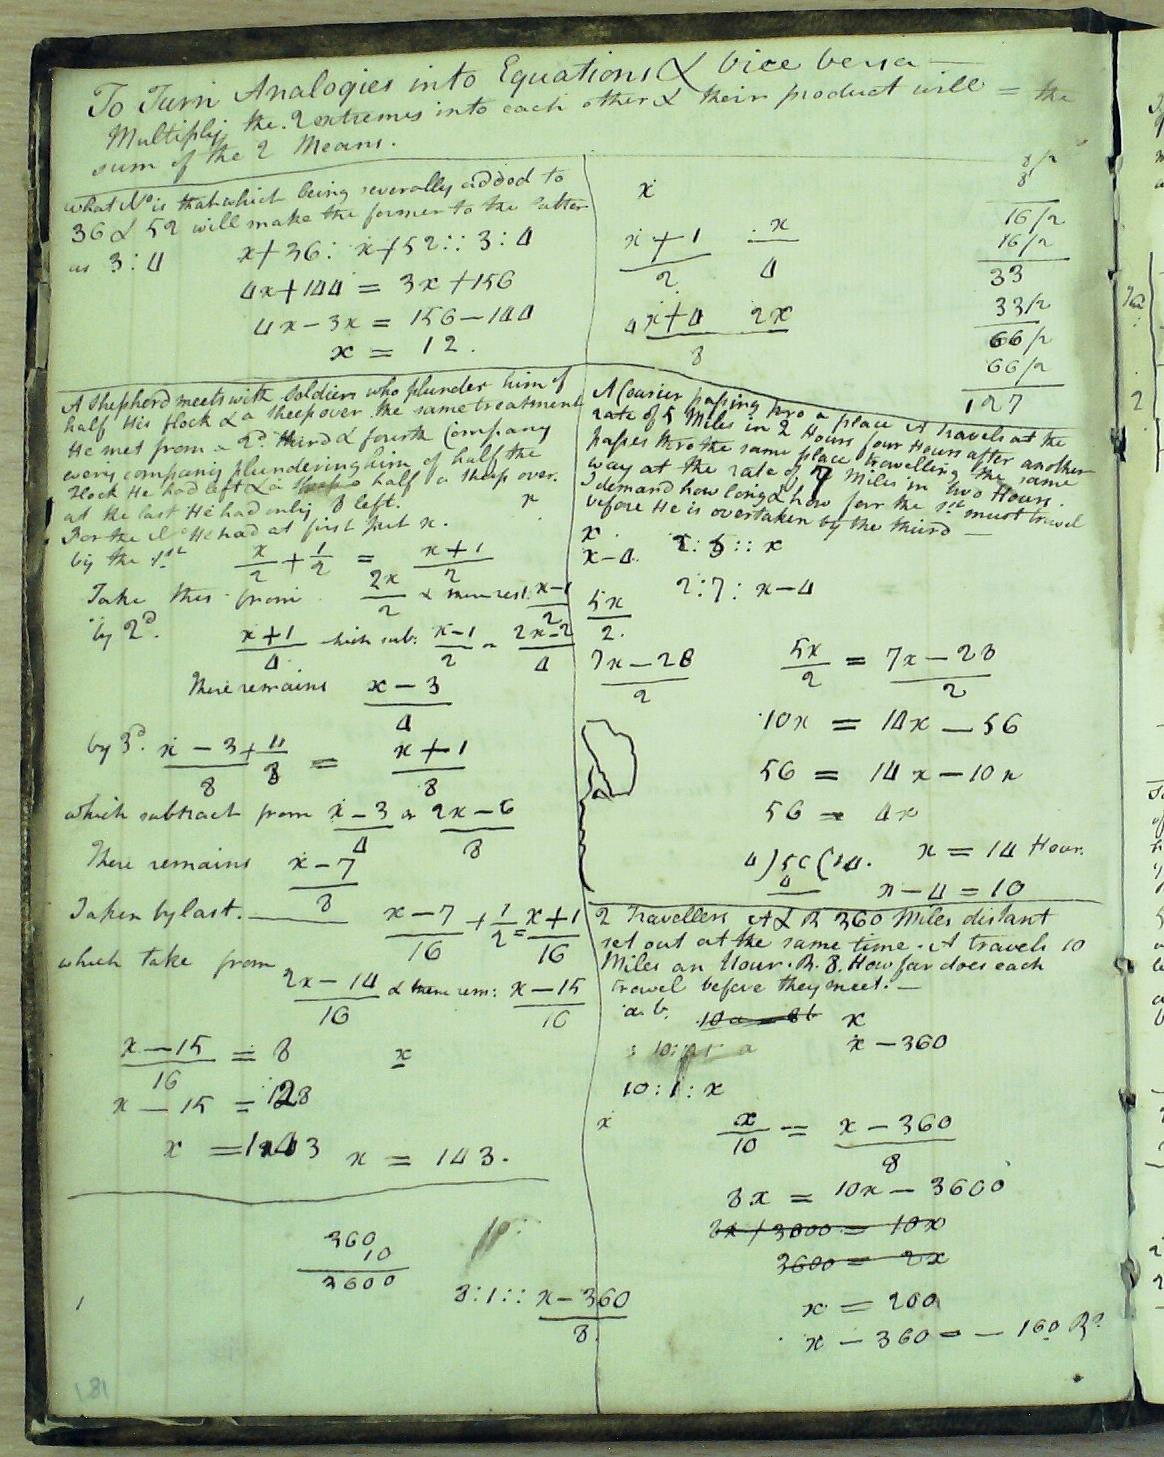 To Turn Analogies into Equations & vice versa —
Multiply the 2 extremes into each other & their product will = the
sum of the 2 Means.
what No is that which being severally added to
36 & 52 will make the former to the latter
as 3:4
x+36: x+52:: 3:4
4x+144 = 3x+156
4x-3x = 156-144
x = 12.
x
x+1 x
2 4
4x+4 2x
8
8/2
8
16/2
16/2
33
33/2
66/2
66/2
127
A shepherd meets with Soldiers who plunder him of
half His flock & a sheep over the same treatment
He met from a 2d third & fourth Company
every company plundering him of half the
flock He had left & a half a sheep over.
at the last He had only 8 left.
For the No He had at first put x.
by the 1st x/2 + 1/2 = x+1/2
Take this from 2x/2 & there rest. x-1/2
by 2d. x+1/4 which sub: x-1/2 or 2x-2/4
There remains x-3/4
by 3d. x-3/8 + 4/8 = x+1/8
which subtract from x-3/4 or 2x-6/8
There remains x-7/8
Taken by last. x-7/16 + 1/2 = x+1/16
which take from
2x-14/16 & there rem: x-15/16
x-15/16 = 8 x
x-15 = 128
x = 143 x = 143.
360
10
3600
8:1:: x-360/8
A Courier passing thro a place A travels at the
rate of 5 Miles in 2 Hours four Hours after another
passes thro the same place travelling the same
way at the rate of 7 Miles in two Hours.
I demand how long & how far the 1st must travel
before He is overtaken by the third —
x 2:5:: x
x-4. 2:7: x-4
5x/2.
7x-28/2
5x/2 = 7x-28/2
10x = 14x-56
56 = 14x-10x
56 = 4x
4)56(14. x = 14 Hour.
4 x-4 = 10
2 Travellers A & B 360 Miles distant
set out at the same time. A travels 10
Miles an Hour. B. 8. How far does each
travel before they meet. —
a. b. 10a = 8b x
x-360
10:1: x
x x/10 = x-360/8
8x = 10x-3600
8x+3600 = 10x
3600 = 2x
x = 200
x-360 = -160 B
181